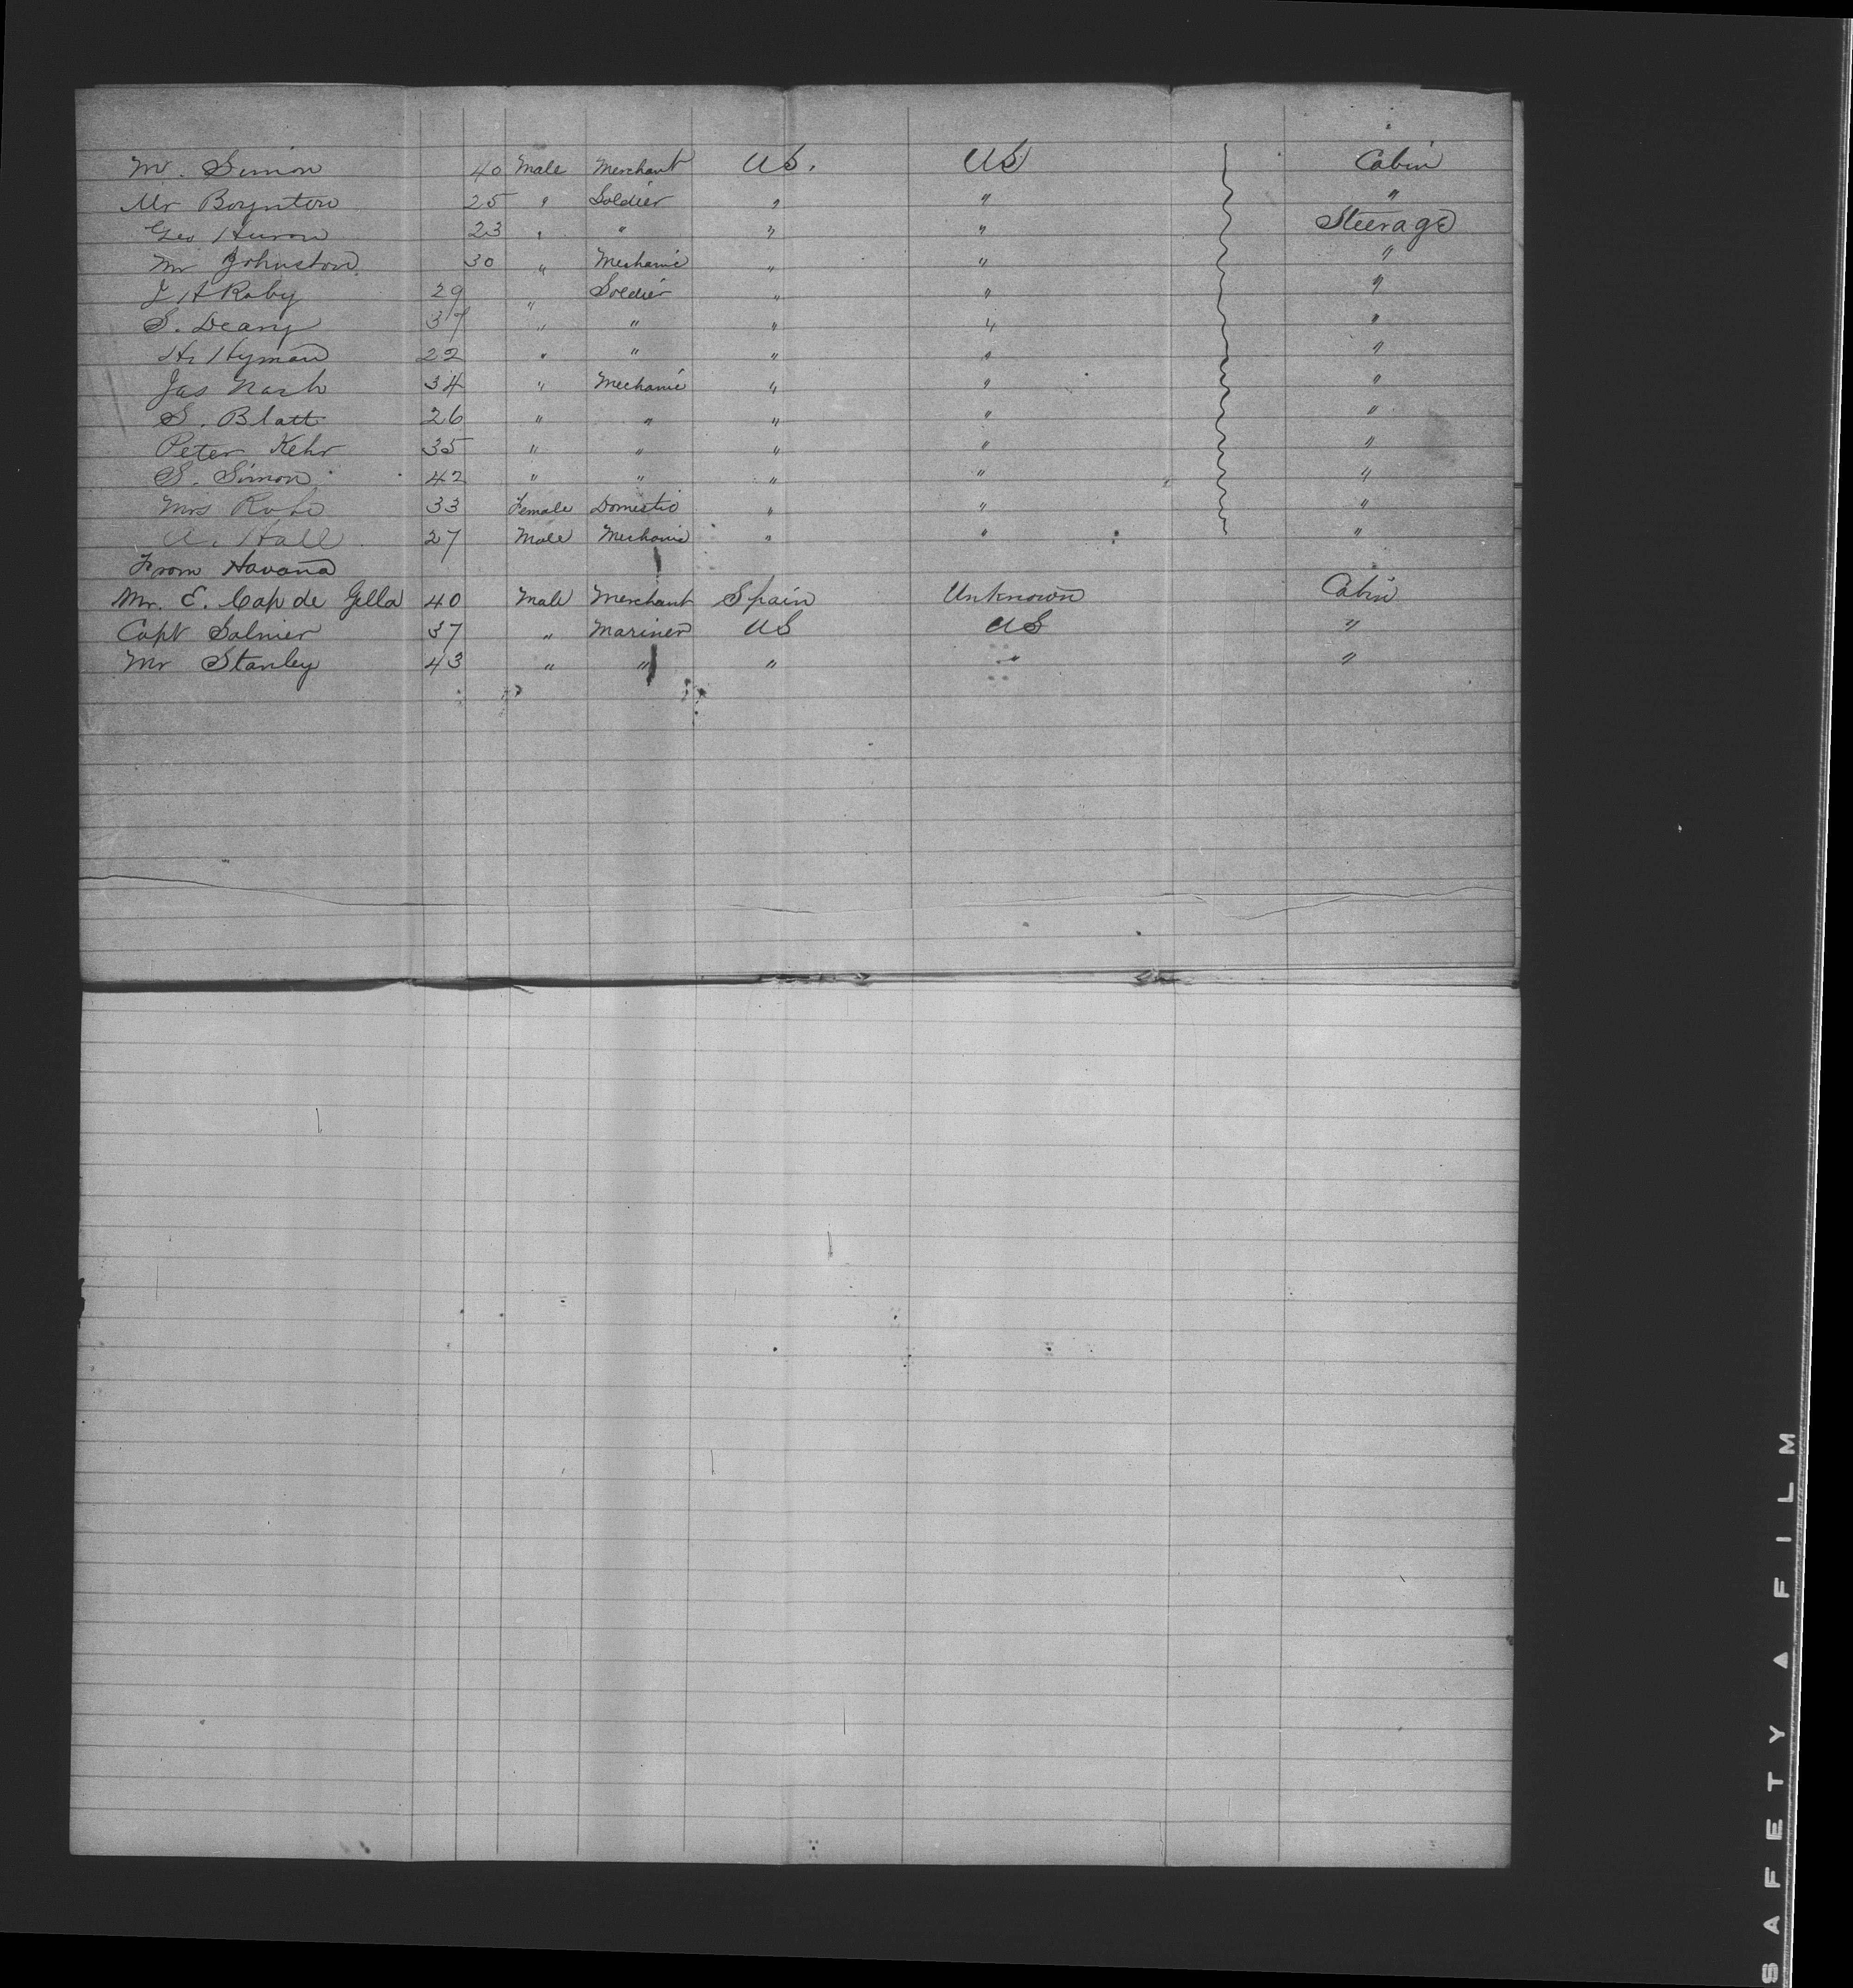 Mr. Simon 40 Male Merchant US. US Cabin
Mr Boynton 25 " Soldier " " "
Geo Huron 23 " " " " Steerage
Mr Johnston 30 " Mechanic " " "
J A Raby 29 " Soldier " " "
S. Deany 37 " " " " "
H. Hyman 22 " " " " "
Jas Nash 34 " Mechanic " " "
S. Blatt 26 " " " " "
Peter Kehr 35 " " " " "
S. Simon 42 " " " " "
Mrs 33 Female Domestic " " "
A. Hall 27 Male Mechanic " " "
From Havana
Mr. E. Cap de 40 Male Merchant Spain Unknown Cabin
Capt Salmier 37 " Mariner US US "
Mr Stanley 43 " " " " "
SAFETY FILM